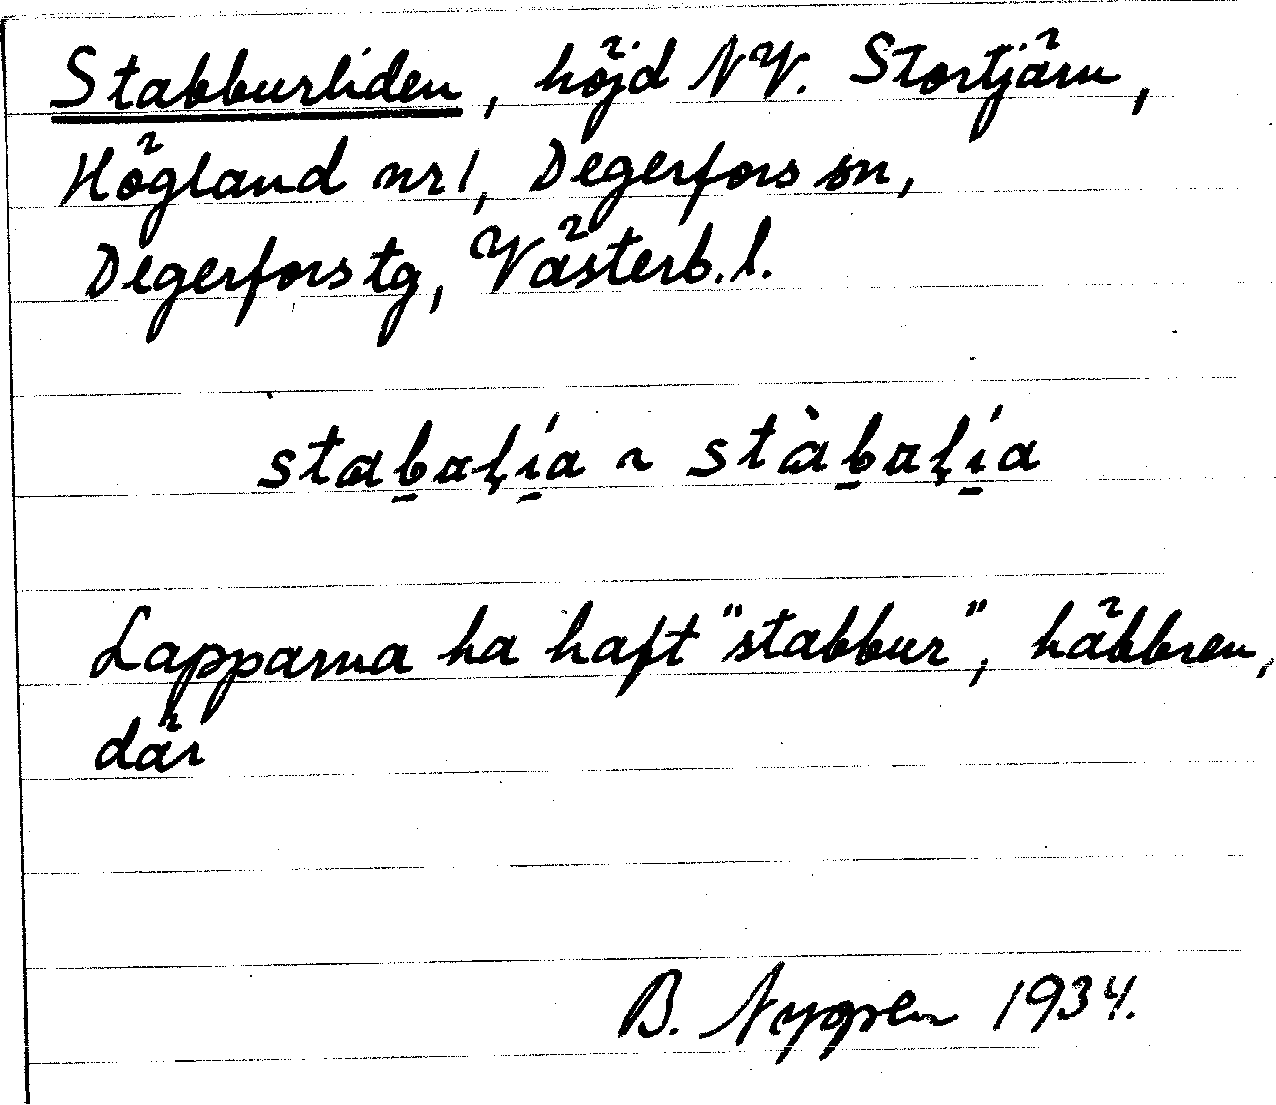 Stabburliden, höjd NV. Stortjärn,
Högland nr 1, Degerfors sn,
Degerfors tg, Västerb. l.
stab̠aḷí̠a ~ stàb̠aḷí̠a
Lapparna ha haft "stabbur", häbbren,
där
B. Nygren 1934.